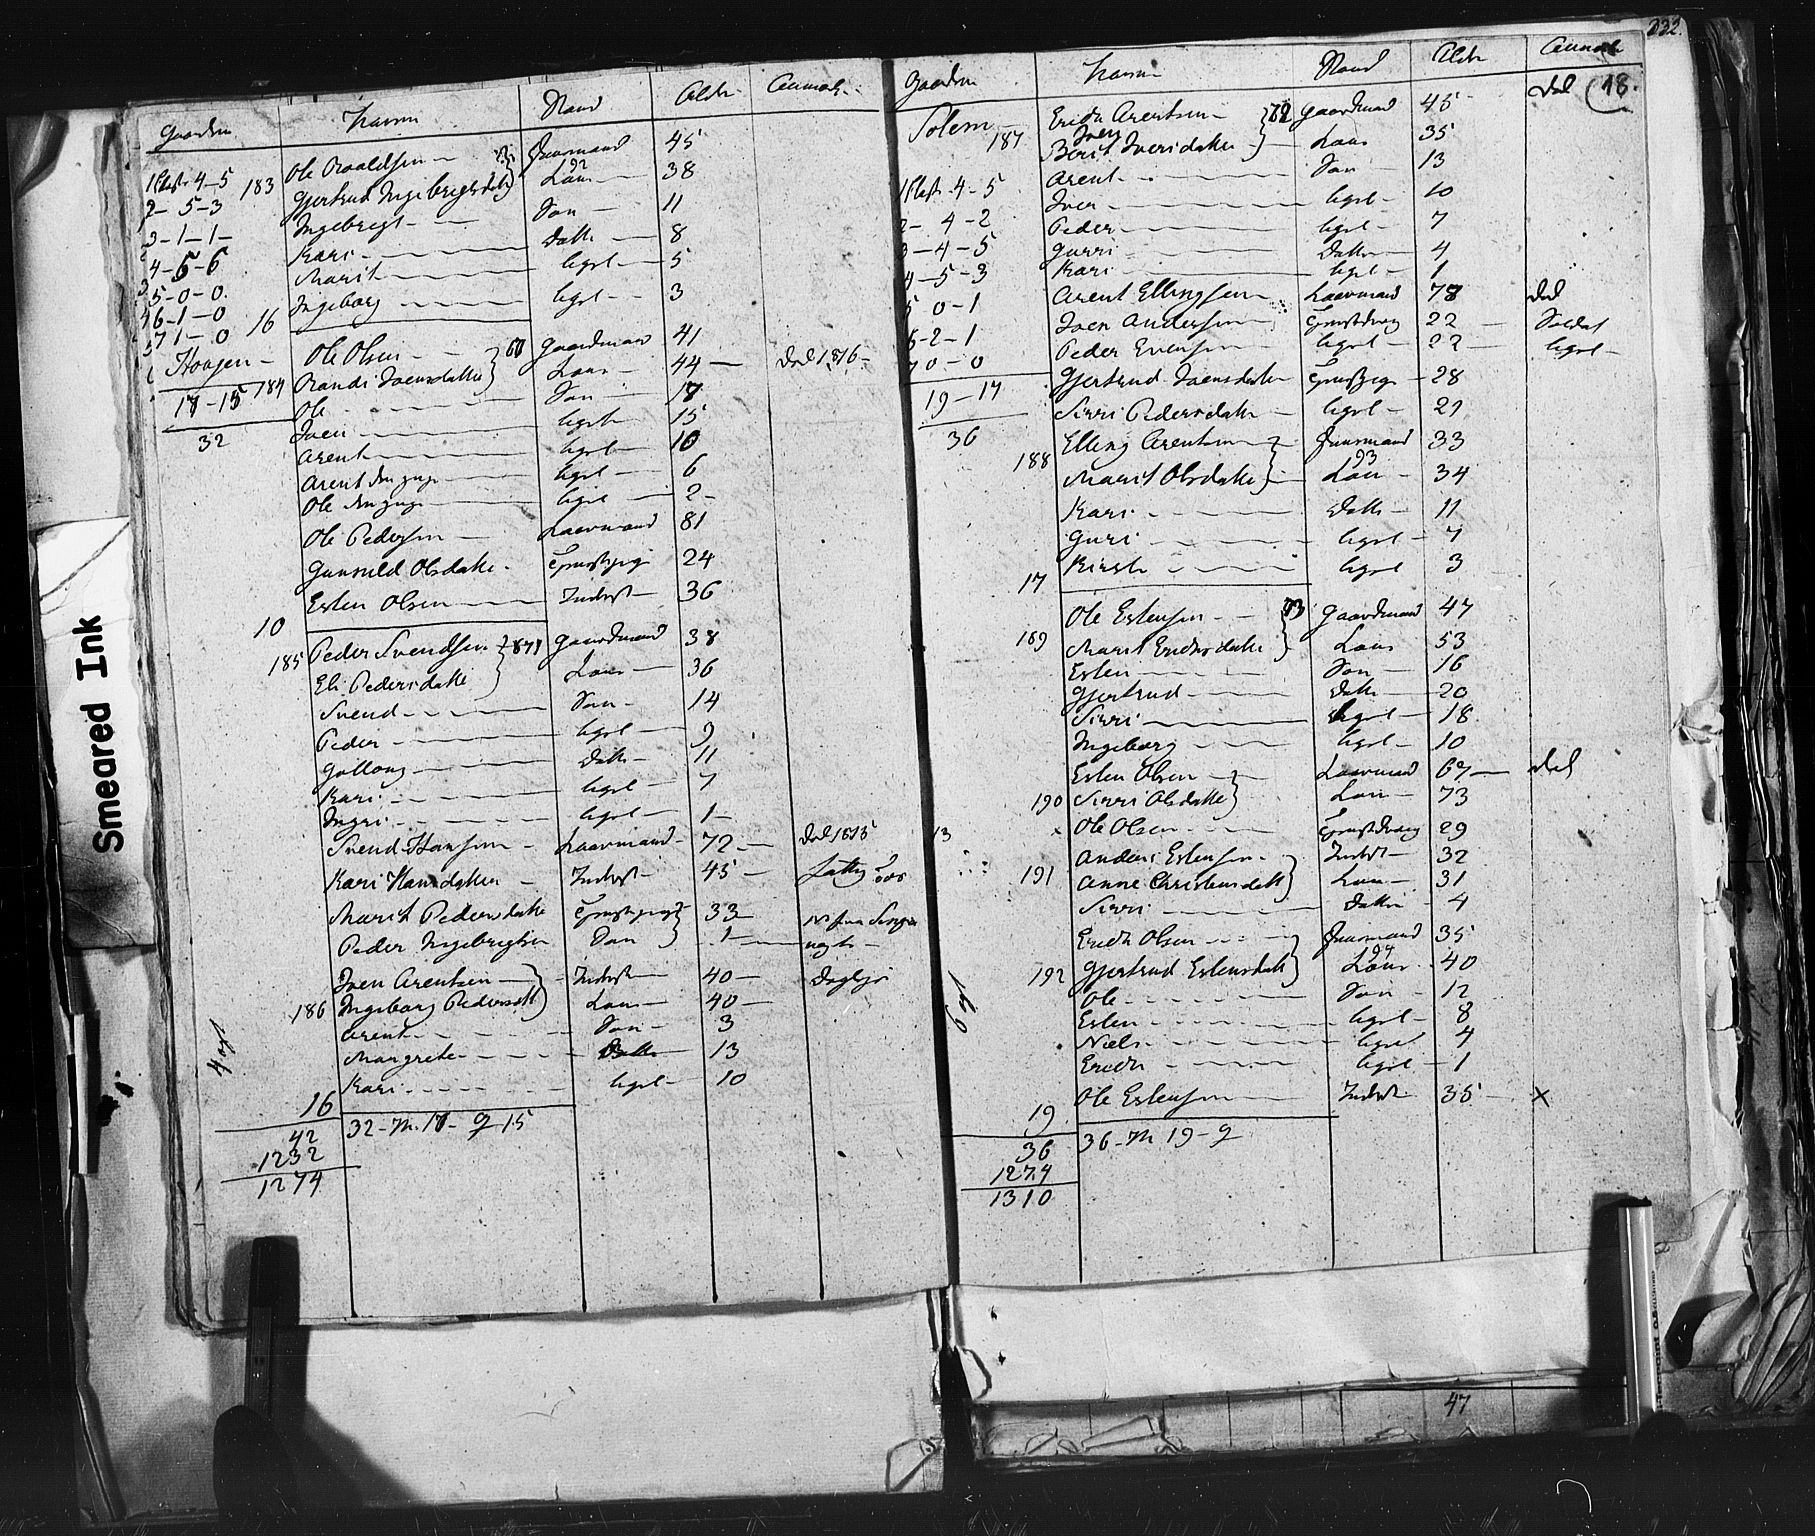 Smeared Ink
Gaardene Navne Stand Alder Anmærk.
1 Klasse 4-5 183 Ole Roaldsen Huusmand 45
2-5-3 Gjertrud Ingebrigtsdatter 92 Kone 38
3-1-1 Ingebrigt Søn 11
4-6-6 Kari Datter 8
5-0-0 Marit ligel 5
6-1-0 16 Ingeborg ligel 3
7 1-0
Haagen Ole Olsen 60 Gaardmand 41
184 Randi Joensdatter Kone 44 Død 1816
17-15 Ole Søn 17
32 Joen ligel 15
Arent ligel 10
Arent den ynge ligel 6
Ole den ynge ligel 2
Ole Pedersen Kaarmand 81
Gunnild Olsdatter 24
10 Esten Olsen Inderst 36
185 Peder Svendsen Gaardmand 38
Eli Pedersdatter Kone 36
Svend Søn 14
Peder ligel 9
Gollaug Datter 11
Kari ligel 7
Ingri ligel 1
Svend Hansen Kaarmand 72 Død 1815
Kari Hansdatter Inderst 45
Marit Pedersdatter 33
Peder Ingebrigtsen Søn 1
Joen Arentsen Inderst 40
186 Ingeborg Pedersdtt Kone 40
Arent Søn 3
Margrete Datter 13
Kari ligel 10
4
16
42 32-M. 17- Q 15
1232
1274
332.
Gaardene Navne Stand Alder Anmærk
18.
Solem 187 Erich Arentsen 72 Gaardmand 45 Død
Berit Iversdatter Kone 35
Arent Søn 13
1 Klasse 4-5 Joen ligel 10
2- 4-2 Peder ligel 7
3-4-5 Gurri Datter 4
4-5-3 Kari ligel 1
5 0-1 Arent Ellingsen Kaarmand 78 Død
6-2-1 Joen Andersen 22 Soldat
7 0-0 Peder Evensen ligel 22 ligel
Gjertrud Joensdatter 28
19-17 Sirri Pedersdatter ligel 29
36 Elling Arentsen Huusmand 33
188 Marit Olsdatter 93 Kone 34
Kari Datter 11
Guri ligel 7
17 Kirsti ligel 3
Ole Estensen 73 Gaardmand 47
189 Marit Erichsdatter Kone 53
Esten Søn 16
Gjertrud Datter 20
Sirri ligel 18
Ingeborg ligel 10
Esten Olsen Kaarmand 67 Død
190 Sirri Olsdatter Kone 73
13 Ole Olsen 29
Anders Estensen Inderst 32
191 Anne Christensdatt Kone 31
Sirri Datter 4
Erich Olsen Huusmand 35
192 Gjertrud Estensdatt 94 Kone 40
Ole Søn 12
Esten ligel 8
Niels ligel 4
Erich ligel 1
Ole Estensen Inderst 35 x
6
19
36 36-M 19-Q
1274
1310
47